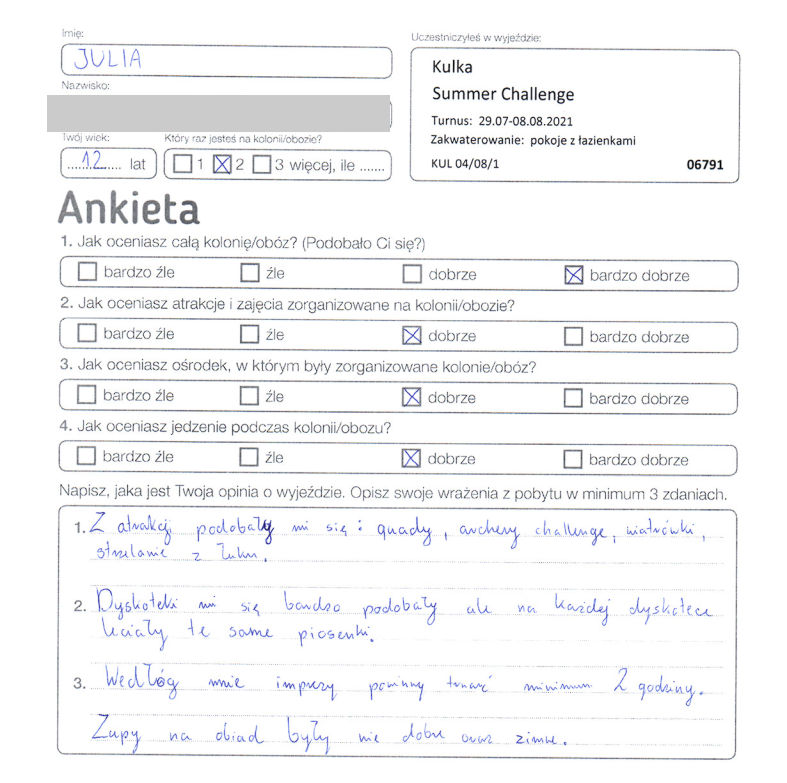 Imię:
JULIA
Nazwisko:
Twój wiek:
12 lat
Który raz jesteś na kolonii/obozie?
1 2 3 więcej, ile .......
Uczestniczyłeś w wyjeździe:
Kulka
Summer Challenge
Turnus: 29.07-08.08.2021
Zakwaterowanie: pokoje z łazienkami
KUL 04/08/1 06791
Ankieta
1. Jak oceniasz całą kolonię/obóz? (Podobało Ci się?)
bardzo źle źle dobrze bardzo dobrze
2. Jak oceniasz atrakcje i zajęcia zorganizowane na kolonii/obozie?
bardzo źle źle dobrze bardzo dobrze
3. Jak oceniasz ośrodek, w którym były zorganizowane kolonie/obóz?
bardzo źle źle dobrze bardzo dobrze
4. Jak oceniasz jedzenie podczas kolonii/obozu?
bardzo źle źle dobrze bardzo dobrze
Napisz, jaka jest Twoja opinia o wyjeździe. Opisz swoje wrażenia z pobytu w minimum 3 zdaniach.
1. Z atrakcji podobały mi się : quady, archery challenge, wiatrówki,
strzelanie z łuku.
2. Dyskoteki mi się bardzo podobały ale na każdej dyskotece
leciały te same piosenki.
3. Wedłóg mnie imprezy powinny trwać minimum 2 godziny.
Zupy na obiad były nie dobre oraz zimne.